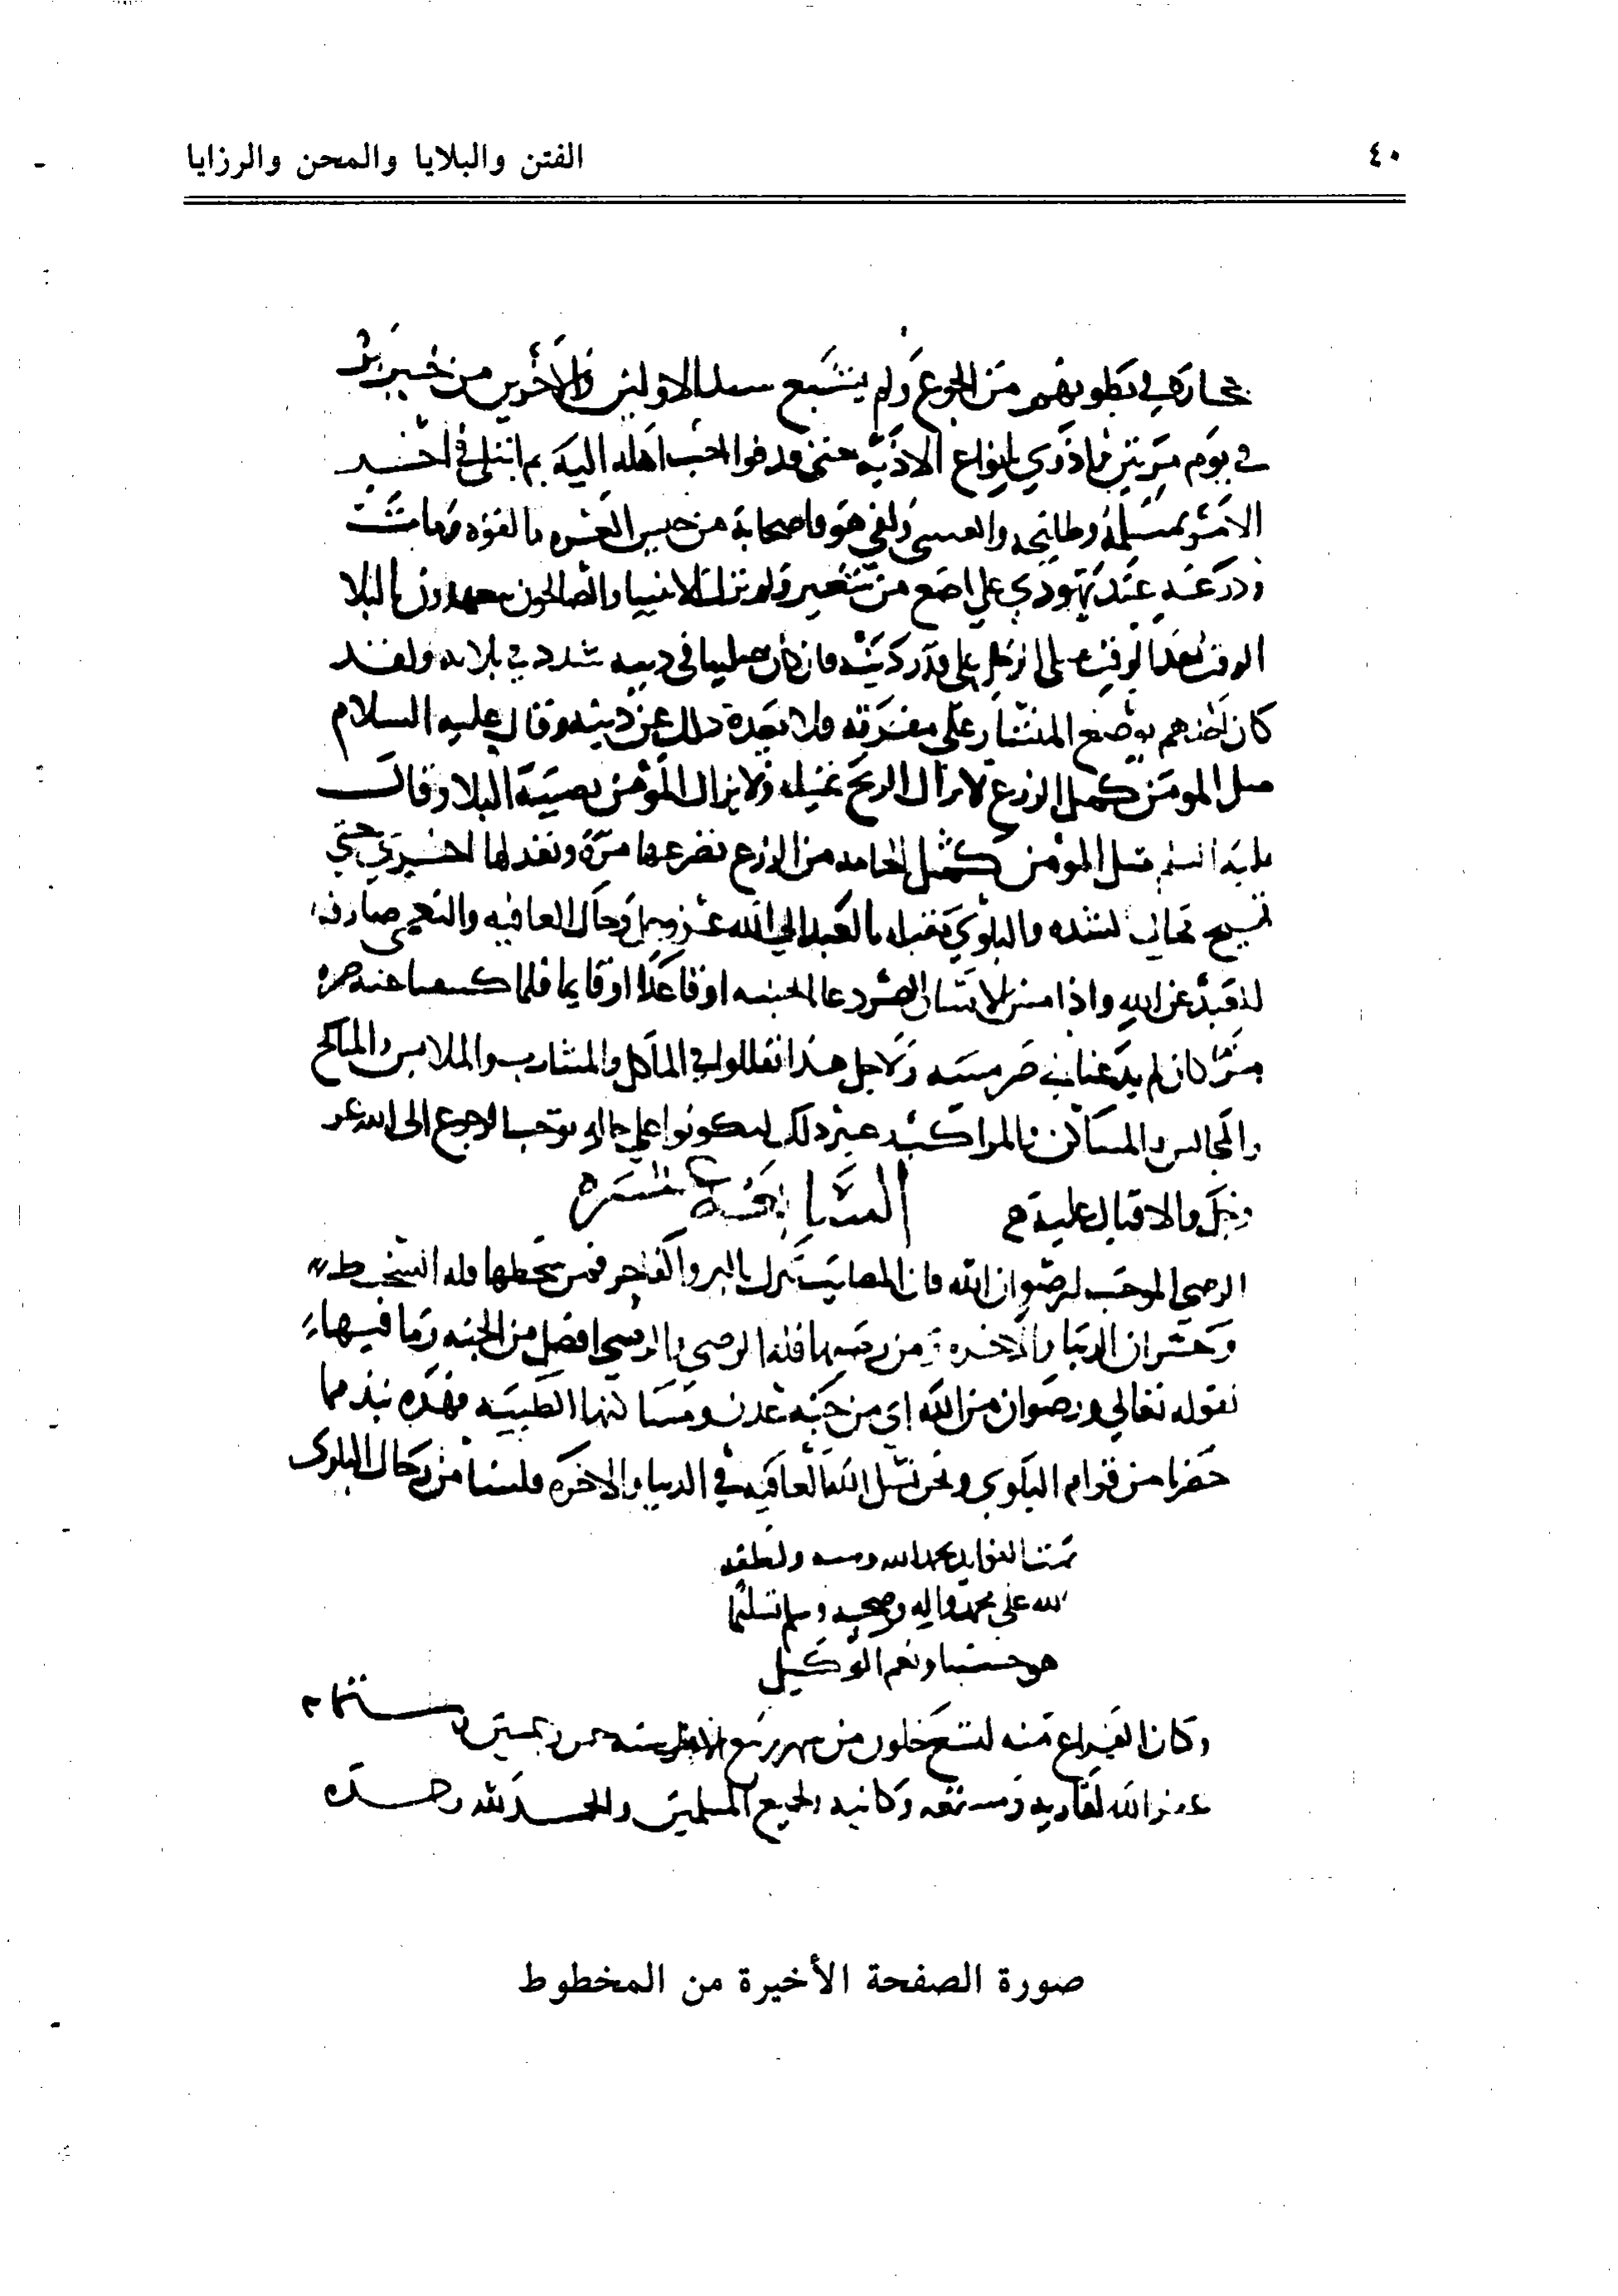 ٤٠
الفتن والبلايا والمحن والرزايا
حجارة في بطونهم من الجوع ولم يشبع سيد الاولين والاخرين من خبز بر
في يوم مرتين فاوذي بانواع الاذية حتى قذفوا احب اهله اليه ثم ابتلي في اخر
الامر بمسيلمة وطليحة والعنسي ولقي هو واصحابه من جيش العسرة ما لقوه ومات
ودرعه عند يهودي على اصع من شعير ولم تزل الانبيا والصالحون بالبلا
الوقت بعد الوقت يبتلى الرجل على قدر دينه فان كان صلبا في دينه شدد في بلايه ولقد
كان احدهم يوضع المنشار على مفرقه فلا يصده ذلك عن دينه وقال عليه السلام
مثل المومن كمثل الزرع لا تزال الريح تميله ولا يزال المؤمن يصيبه البلا وقال
عليه السلم مثل المؤمن كمثل الخامه من الزرع تصرعها مرة وتعدلها اخرى حتى
تهيج فحال الشده والبلوى مقبله بالعبد الى الله عز وجل وحال العافيه والنعمى صارفه
للعبد عن الله واذا مس الانسان الضر دعانا لجنبه او قاعدا او قايما فلما كشفنا عنه ضره
مر كان لم يدعنا الى ضر مسه ولاجل هذا تقللوا في المآكل والمشارب والملابس والمناكح
والمجالس والمساكن والمراكب وغير ذلك ليكونوا على حاله توجب الرجوع الى الله عز
وجل والاقبال عليه السابعة عشره
الرضى الموجب لرضوان الله فان المصايب تنزل بالبر والفاجر فمن سخطها فله السخط
وخسران الدنيا والاخرة ومن رضيها فله الرضى والرضى افضل من الجنه وما فيها
لقوله تعالى ورضوان من الله اكبر اي من جنة عدن ومساكنها الطيبه فهذه نبذ مما
حضرنا من فوايد البلوى ونحن نسل الله العافيه في الدنيا والاخره فلسنا من رجال البلوى
تمت الفوايد بحمد الله ومنه ولطفه
الله على محمد واله وصحبه وسلم تسليما
هو حسبنا ونعم الوكيل
وكان الفراغ منه لتسع خلون من شهر ربيع سنه
غفر الله لقاريه وكاتبه ولجميع المسلمين والحمد لله وحده
صورة الصفحة الأخيرة من المخطوط